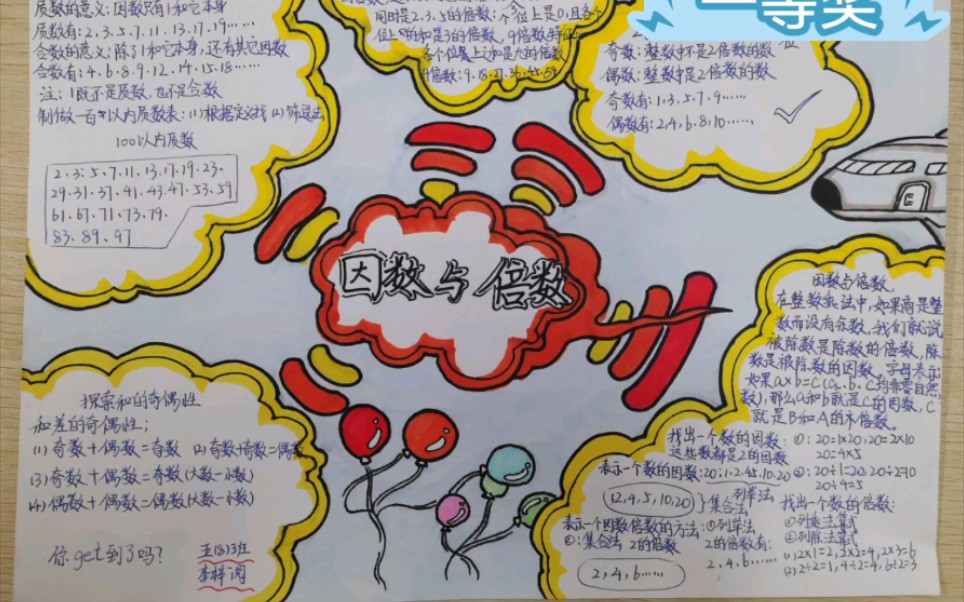 质数的意义:因数只有1和它本身
质数有:2,3,5,7,11,13,17,19……
合数的意义:除了1和它本身,还有其它因数
合数有:4,6,8,9,12,14,15,18……
注:1既不是质数,也不是合数
制做一百以内质数表:(1)根据定义找(2)筛选法
100以内质数
2.3.5.7.11.13.17.19.23.
29.31.37.41.43.47.53.59
61.67.71.73.79.
83.89.97
同时是2.3.5的倍数:个位上是0,且各个
位上的和是3的倍数,9倍数特征
各个位置上之和是九的倍数
9倍数:9.18.27.36.45.54
一等奖
奇数:整数中不是2倍数的数
偶数:整数中是2倍数的数
奇数有:1.3.5.7.9……
偶数有:2,4,6,8,10……
因数与倍数
探索和的奇偶性
加差的奇偶性:
(1)奇数+偶数=奇数 (2)奇数+奇数=偶数
(3)奇数+偶数=奇数(大数-小数)
(4)偶数+偶数=偶数(大数-小数)
你get到了吗?
五(8)班
因数与倍数
在整数乘法中,如果商是整
数而没有余数,我们就说
被除数是除数的倍数,除
数是被除数的因数。字母表示:
如果a×b=c(a、b、c均非零自然
数),那么a和b就是c的因数,c
就是B和A的倍数。
找出一个数的因数:①:20=1×20,20=2×10
这些数都是2的因数 20=4×5
表示一个数的因数:20:1.2.4.5.10.20 ②:20÷1=20,20÷2=10
20÷4=5
1,2,4,5,10,20 }集合法 列举法
找出一个数的倍数:
①列乘法算式
②列除法算式
(1)2×1=2,2×2=4,2×3=6
(2)2÷2=1,4÷2=2,6÷2=3
表示一个因数倍数的方法:①列举法
②:集合法 2的倍数 2的倍数有:
2,4,6……
2,4,6……